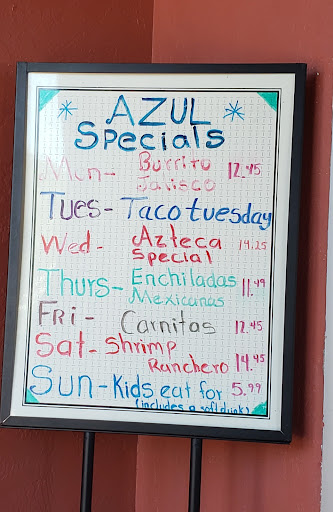 AZUL
Specials
Mon- Burrito 12.45
Jalisco
Tues- Taco tuesday
Wed- Azteca 14.25
special
Thurs- Enchiladas 11.49
Mexicanas
Fri- Carnitas 12.45
Sat- Shrimp
Ranchero 14.45
Sun- Kids eat for 5.99
(includes a soft drink)